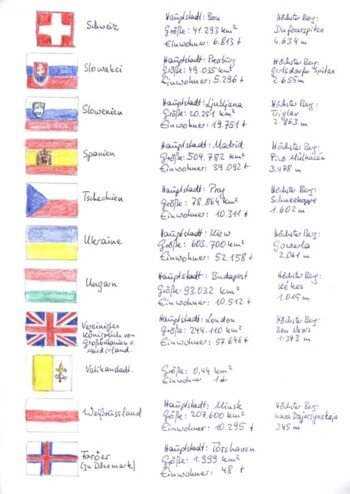 Schweiz
Hauptstadt: Bern
Größe: 41.293 km²
Einwohner: 6.813 t
Höchster Berg:
Dufourspitze
4.634 m
Slowakei
Hauptstadt: Preßburg
Größe: 49.035 km²
Einwohner: 5.296 t
Höchster Berg:
Gerlsdorfer Spitze
2.655 m
Slowenien
Hauptstadt: Ljubljana
Größe: 20.251 km²
Einwohner: 19.751 t
Höchster Berg:
Triglav
2.863 m
Spanien
Hauptstadt: Madrid
Größe: 504.782 km²
Einwohner: 39.092 t
Höchster Berg:
Pico Mulhacén
3.478 m
Tschechien
Hauptstadt: Prag
Größe: 78.864 km²
Einwohner: 10.311 t
Höchster Berg:
Schneekoppe
1.602 m
Ukraine
Hauptstadt: Kiew
Größe: 603.700 km²
Einwohner: 52.158 t
Höchster Berg:
Gowerla
2.061 m
Ungarn
Hauptstadt: Budapest
Größe: 93.032 km²
Einwohner: 10.512 t
Höchster Berg:
Kékes
1.015 m
Vereinigtes
Königreich von
Großbritanien u.
Nordirland.
Hauptstadt: London
Größe: 244.110 km²
Einwohner: 57.646 t
Höchster Berg:
Ben Nevis
1.343 m
Vatikanstadt
Größe: 0,44 km²
Einwohner 1 t
Weißrussland
Hauptstadt: Minsk
Größe: 207.600 km²
Einwohner: 10.295 t
Höchster Berg:
345 m
Faröer
(zu Dänemark)
Hauptstadt: Torshaven
Größe: 1.399 km²
Einwohner: 48 t